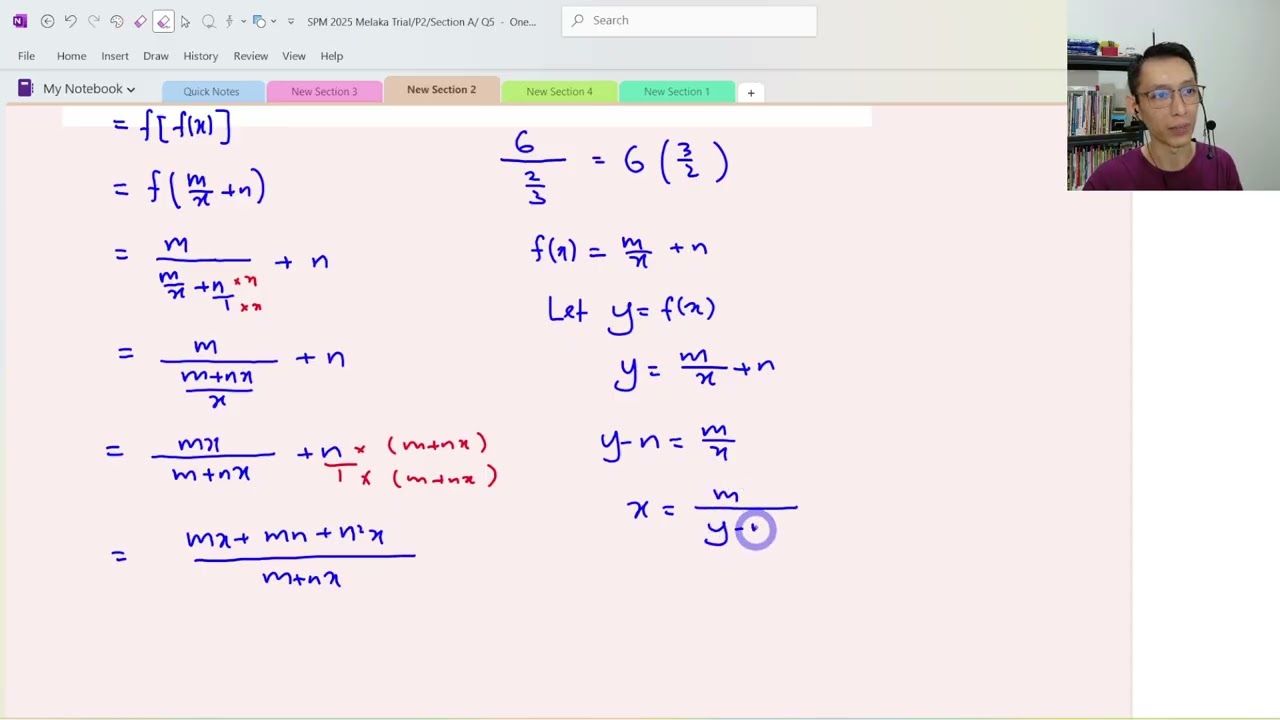 SPM 2025 Melaka Trial/P2/Section A/ Q5 - One...
Search
File Home Insert Draw History Review View Help
My Notebook
Quick Notes
New Section 3
New Section 2
New Section 4
New Section 1
+
= f[f(x)]
= f(m/x + n)
= m/(m/x + n/1) + n
× x
× x
= m/((m+nx)/x) + n
= mx/(m+nx) + n/1
× (m+nx)
× (m+nx)
= (mx + mn + n²x)/(m+nx)
6/(2/3) = 6(3/2)
f(x) = m/x + n
Let y = f(x)
y = m/x + n
y-n = m/x
x = m/(y-